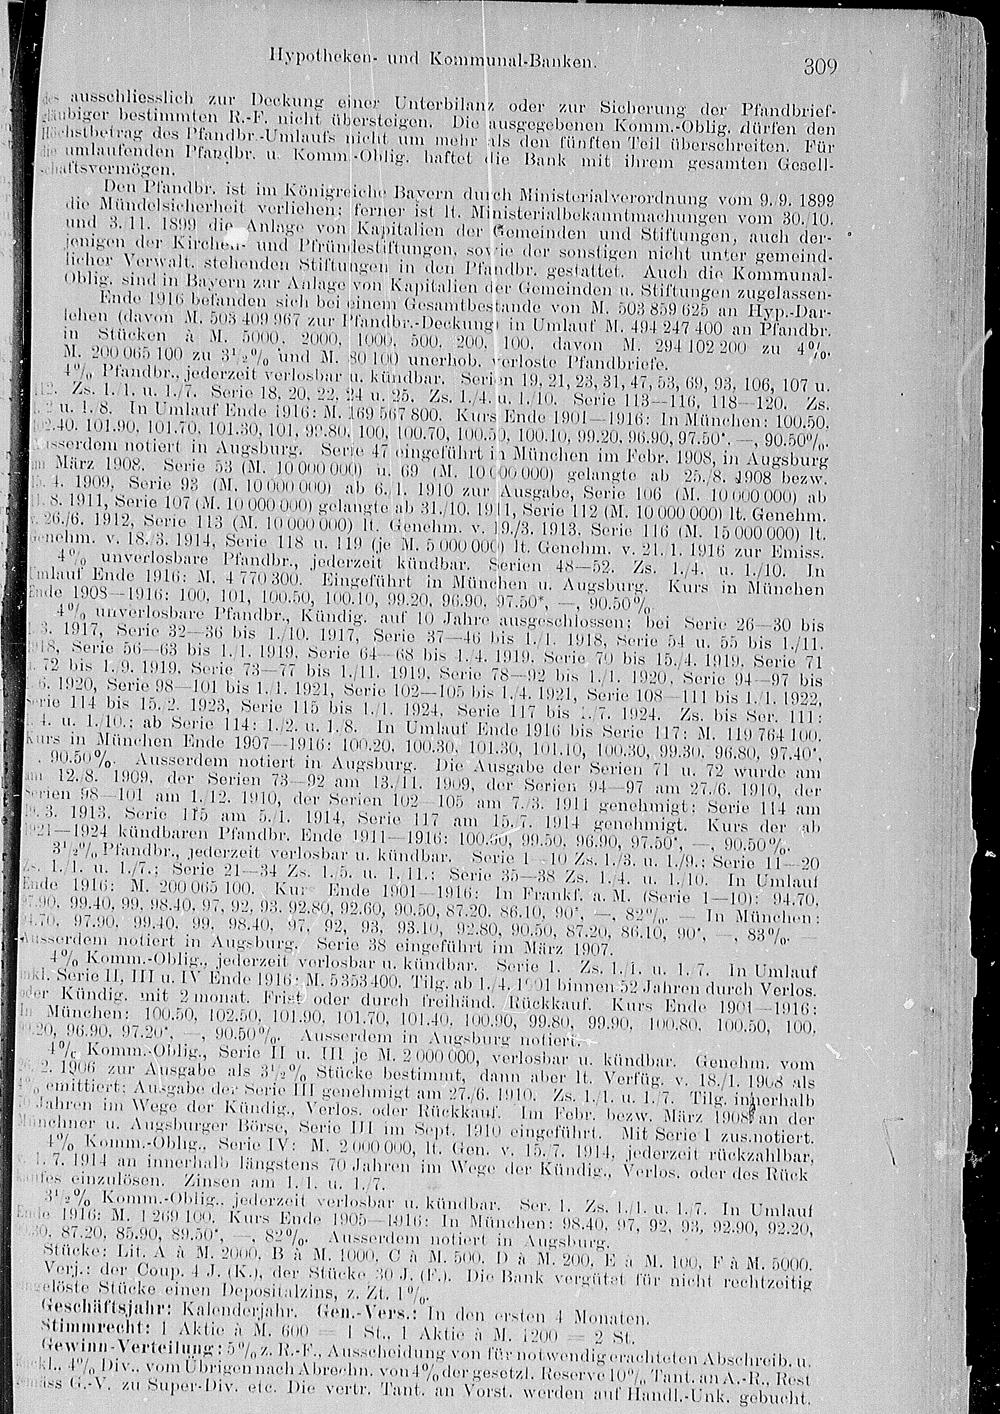 Hypotheken- und Kommunal-Banken. 309
des ausschliesslich zur Deckung einer Unterbilanz oder zur Sicherung der Pfandbrief-
gläubiger bestimmten R.-F. nicht übersteigen. Die ausgegebenen Komm.-Oblig. dürfen den
Höchstbetrag des Pfandbr.-Umlaufs nicht um mehr als den fünften Teil überschreiten. Für
die umlaufenden Pfandbr. u. Komm.-Oblig. haftet die Bank mit ihrem gesamten Gesell-
schaftsvermögen.
Den Pfandbr. ist im Königreiche Bayern durch Ministerialverordnung vom 9./9. 1899
die Mündelsicherheit verliehen; ferner ist lt. Ministerialbekanntmachungen vom 30./10.
und 3./11. 1899 die Anlage von Kapitalien der Gemeinden und Stiftungen, auch der-
jenigen der Kirchen- und Pfründestiftungen, sowie der sonstigen nicht unter gemeind-
licher Verwalt. stehenden Stiftungen in den Pfandbr. gestattet. Auch die Kommunal-
Oblig. sind in Bayern zur Anlage von Kapitalien der Gemeinden u. Stiftungen zugelassen.
Ende 1916 befanden sich bei einem Gesamtbestande von M. 503 859 625 an Hyp.-Dar-
lehen (davon M. 503 409 967 zur Pfandbr.-Deckung) in Umlauf M. 494 247 400 an Pfandbr.
in Stücken à M. 5000, 2000, 1000, 500, 200, 100, davon M. 294 102 200 zu 4%,
M. 200 065 100 zu 3½% und M. 80 100 unerhob. verloste Pfandbriefe.
4% Pfandbr., jederzeit verlosbar u. kündbar. Serien 19, 21, 23, 31, 47, 53, 69, 93, 106, 107 u.
112. Zs. 1./1. u. 1./7. Serie 18, 20, 22, 24 u. 25. Zs. 1./4. u. 1./10. Serie 113—116, 118—120. Zs.
1./2. u. 1./8. In Umlauf Ende 1916: M. 169 567 800. Kurs Ende 1901—1916: In München: 100.50,
102.40, 101.90, 101.70, 101.30, 101, 99.80, 100, 100.70, 100.50, 100.10, 99.20, 96.90, 97.50*, —, 90.50%.
Ausserdem notiert in Augsburg. Serie 47 eingeführt in München im Febr. 1908, in Augsburg
im März 1908. Serie 53 (M. 10 000 000) u. 69 (M. 10 000 000) gelangte ab 25./8. 1908 bezw.
15./4. 1909, Serie 93 (M. 10 000 000) ab 6./1. 1910 zur Ausgabe, Serie 106 (M. 10 000 000) ab
1./8. 1911, Serie 107 (M. 10 000 000) gelangte ab 31./10. 1911, Serie 112 (M. 10 000 000) lt. Genehm.
v. 26./6. 1912, Serie 113 (M. 10 000 000) lt. Genehm. v. 19./3. 1913, Serie 116 (M. 15 000 000) lt.
Genehm. v. 18./3. 1914, Serie 118 u. 119 (je M. 5 000 000) lt. Genehm. v. 21./1. 1916 zur Emiss.
4% unverlosbare Pfandbr., jederzeit kündbar. Serien 48—52. Zs. 1./4. u. 1./10. In
Umlauf Ende 1916: M. 4 770 300. Eingeführt in München u. Augsburg. Kurs in München
Ende 1908—1916: 100, 101, 100.50, 100.10, 99.20, 96.90, 97.50*, —, 90.50%.
4% unverlosbare Pfandbr., Kündig. auf 10 Jahre ausgeschlossen; bei Serie 26—30 bis
1./3. 1917, Serie 32—36 bis 1./10. 1917, Serie 37—46 bis 1./1. 1918, Serie 54 u. 55 bis 1./11.
1918, Serie 56—63 bis 1./1. 1919, Serie 64—68 bis 1./4. 1919, Serie 70 bis 15./4. 1919, Serie 71
u. 72 bis 1./9. 1919, Serie 73—77 bis 1./11. 1919, Serie 78—92 bis 1./1. 1920, Serie 94—97 bis
1./6. 1920, Serie 98—101 bis 1./1. 1921, Serie 102—105 bis 1./4. 1921, Serie 108—111 bis 1./1. 1922,
Serie 114 bis 15./2. 1923, Serie 115 bis 1./1. 1924, Serie 117 bis 1./7. 1924. Zs. bis Ser. 111:
1./4. u. 1./10.; ab Serie 114: 1./2. u. 1./8. In Umlauf Ende 1916 bis Serie 117: M. 119 764 100.
Kurs in München Ende 1907—1916: 100.20, 100.30, 101.30, 101.10, 100.30, 99.30, 96.80, 97.40*,
—, 90.50%. Ausserdem notiert in Augsburg. Die Ausgabe der Serien 71 u. 72 wurde am
am 12./8. 1909, der Serien 73—92 am 13./11. 1909, der Serien 94—97 am 27./6. 1910, der
Serien 98—101 am 1./12. 1910, der Serien 102—105 am 7./3. 1911 genehmigt; Serie 114 am
19./3. 1913, Serie 115 am 5./1. 1914, Serie 117 am 15./7. 1914 genehmigt. Kurs der ab
1921—1924 kündbaren Pfandbr. Ende 1911—1916: 100.60, 99.50, 96.90, 97.50*, —, 90.50%.
3½% Pfandbr., jederzeit verlosbar u. kündbar. Serie 1—10 Zs. 1./3. u. 1./9.; Serie 11—20
Zs. 1./1. u. 1./7.; Serie 21—34 Zs. 1./5. u. 1./11.; Serie 35—38 Zs. 1./4. u. 1./10. In Umlauf
Ende 1916: M. 200 065 100. Kurs Ende 1901—1916: In Frankf. a. M. (Serie 1—10): 94.70,
97.90, 99.40, 99, 98.40, 97, 92, 93, 92.80, 92.60, 90.50, 87.20, 86.10, 90*, —, 82%. — In München:
94.70, 97.90, 99.40, 99, 98.40, 97, 92, 93, 93.10, 92.80, 90.50, 87.20, 86.10, 90*, —, 83%. —
Ausserdem notiert in Augsburg. Serie 38 eingeführt im März 1907.
4% Komm.-Oblig., jederzeit verlosbar u. kündbar. Serie I. Zs. 1./1. u. 1./7. In Umlauf
inkl. Serie II, III u. IV Ende 1916: M. 5 353 400. Tilg. ab 1./4. 1901 binnen 52 Jahren durch Verlos.
oder Kündig. mit 2 monat. Frist oder durch freihänd. Rückkauf. Kurs Ende 1901—1916:
In München: 100.50, 102.50, 101.90, 101.70, 101.40, 100.90, 99.80, 99.90, 100.80, 100.50, 100,
99.20, 96.90, 97.20*, —, 90.50%. Ausserdem in Augsburg notiert.
4% Komm.-Oblig., Serie II u. III je M. 2 000 000, verlosbar u. kündbar. Genehm. vom
26./2. 1906 zur Ausgabe als 3½% Stücke bestimmt, dann aber lt. Verfüg. v. 18./1. 1908 als
4% emittiert; Ausgabe der Serie III genehmigt am 27./6. 1910. Zs. 1./1. u. 1./7. Tilg. innerhalb
70 Jahren im Wege der Kündig., Verlos. oder Rückkauf. Im Febr. bezw. März 1908 an der
Münchner u. Augsburger Börse, Serie III im Sept. 1910 eingeführt. Mit Serie I zus.notiert.
4% Komm.-Oblig., Serie IV: M. 2 000 000, lt. Gen. v. 15./7. 1914, jederzeit rückzahlbar,
v. 1./7. 1914 an innerhalb längstens 70 Jahren im Wege der Kündig., Verlos. oder des Rück
kaufes einzulösen. Zinsen am 1./1. u. 1./7.
3½% Komm.-Oblig., jederzeit verlosbar u. kündbar. Ser. I. Zs. 1./1. u. 1./7. In Umlauf
Ende 1916: M. 1 269 100. Kurs Ende 1905—1916: In München: 98.40, 97, 92, 93, 92.90, 92.20,
90.30, 87.20, 85.90, 89.50*, —, 82%. Ausserdem notiert in Augsburg.
Stücke: Lit. A à M. 2000, B à M. 1000, C à M. 500, D à M. 200, E à M. 100, F à M. 5000.
Verj.: der Coup. 4 J. (K.), der Stücke 30 J. (F.). Die Bank vergütet für nicht rechtzeitig
eingelöste Stücke einen Depositalzins, z. Zt. 1%.
Geschäftsjahr: Kalenderjahr. Gen.-Vers.: In den ersten 4 Monaten.
Stimmrecht: 1 Aktie à M. 600 = 1 St., 1 Aktie à M. 1200 = 2 St.
Gewinn-Verteilung: 5% z. R.-F., Ausscheidung von für notwendig erachteten Abschreib. u.
Rückl., 4% Div., vom Übrigen nach Abrechn. von 4% der gesetzl. Reserve 10% Tant. an A.-R., Rest
gemäss G.-V. zu Super-Div. etc. Die vertr. Tant. an Vorst. werden auf Handl.-Unk. gebucht.